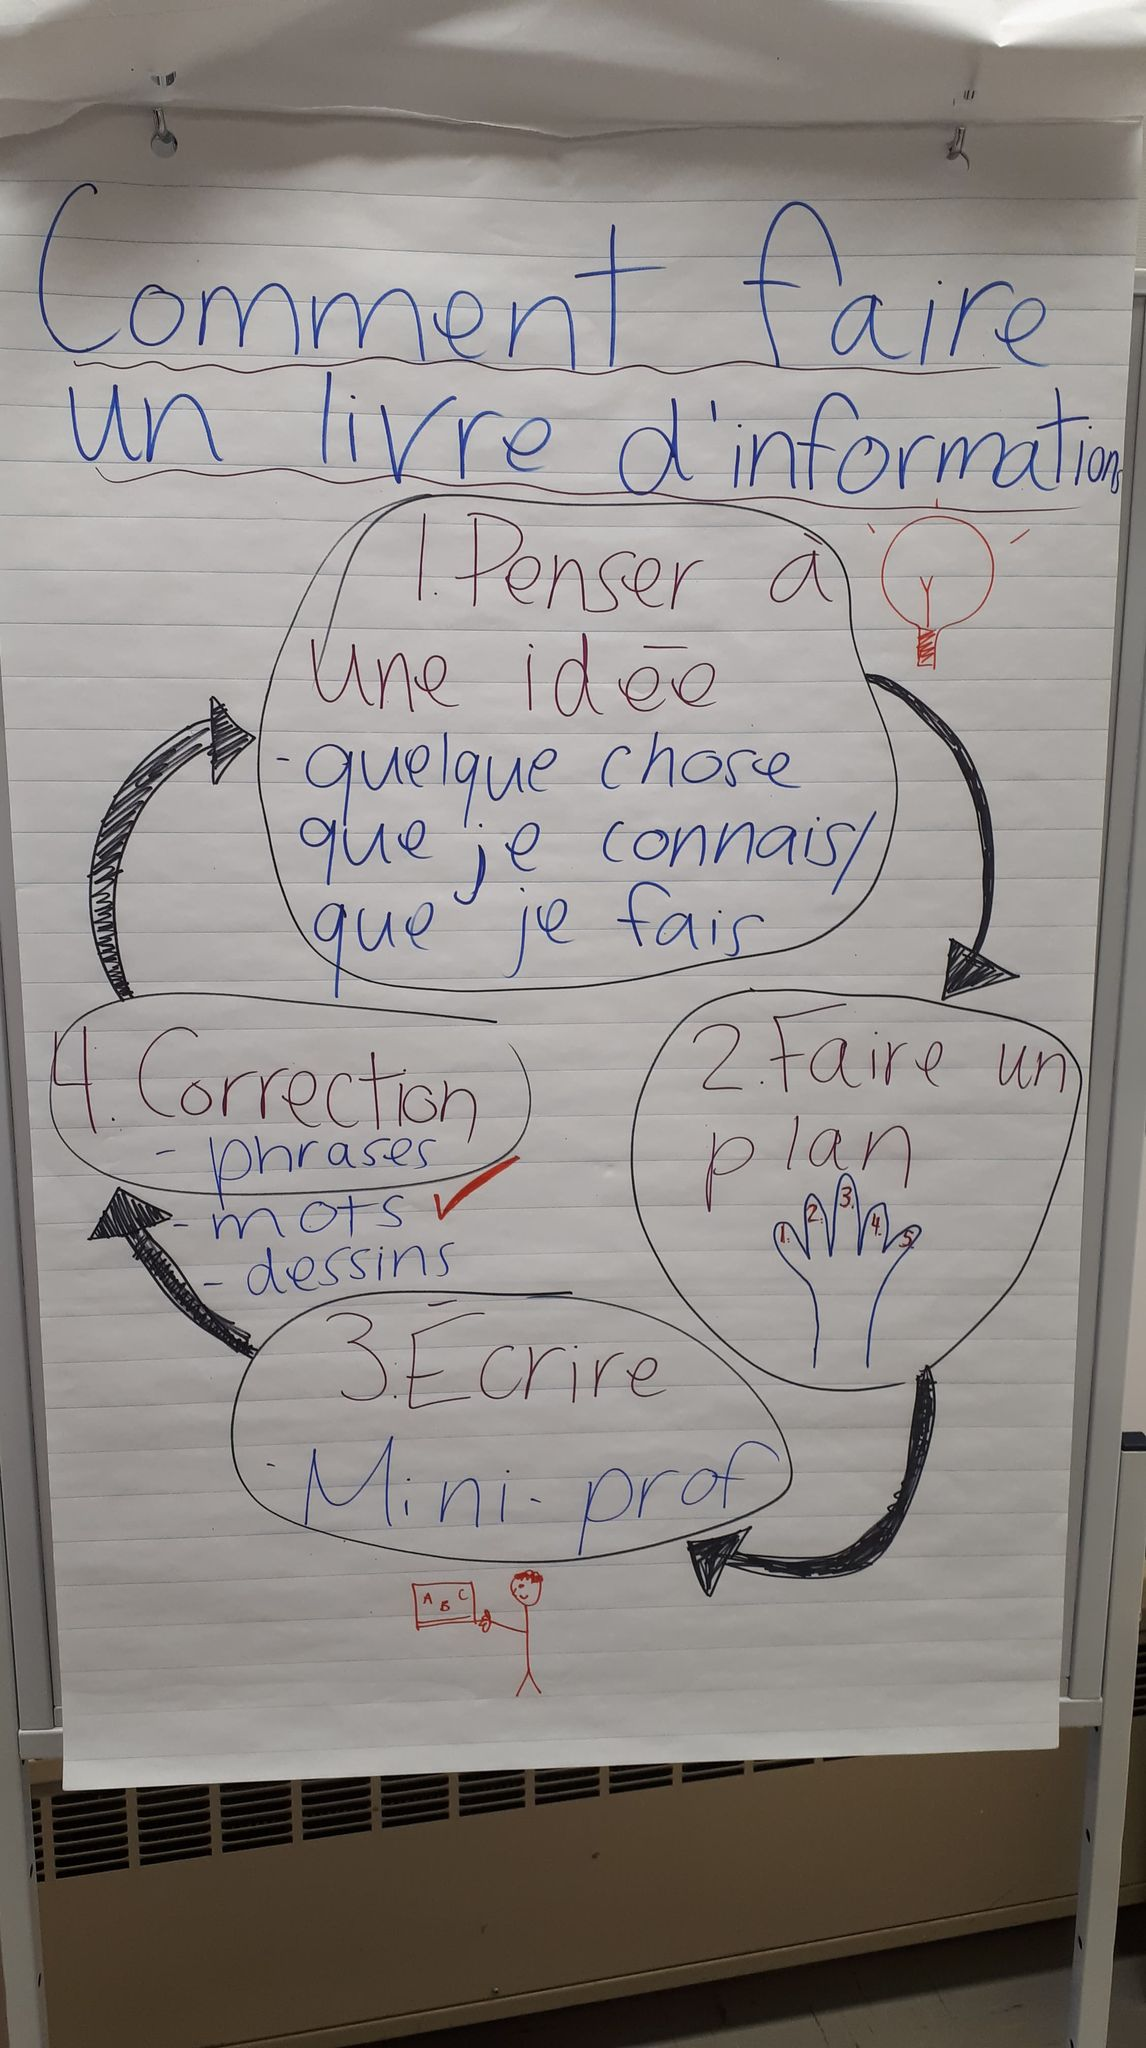 Comment faire
un livre d'informations
1. Penser à
une idée
- quelque chose
que je connais/
que je fais
2. Faire un
plan
1. 2. 3. 4. 5.
3. Écrire
- Mini-prof
A B C
4. Correction
- phrases
- mots
- dessins